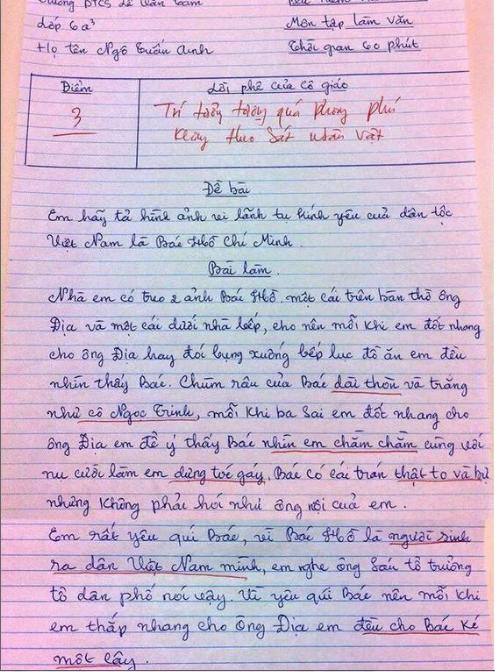 Trường PTCS Lê Văn Tám
Lớp 6a³
Môn tập làm văn
Họ tên Ngô Tuấn Anh
Thời gian 60 phút
Điểm
Lời phê của cô giáo
3
Trí tưởng tượng quá phong phú
Không theo sát nhân vật
Đề bài
Em hãy tả hình ảnh vi lãnh tụ kính yêu của dân tộc
Việt Nam là Bác Hồ Chí Minh.
Bài làm.
Nhà em có treo 2 ảnh Bác Hồ. một cái trên bàn thờ ông
Địa và một cái dưới nhà bếp, cho nên mỗi khi em đốt nhang
cho ông Địa hay đói bụng xuống bếp lục đồ ăn em đều
nhìn thấy Bác. Chùm râu của Bác dài thòn và trắng
như cô Ngọc Trinh, mỗi khi ba sai em đốt nhang cho
ông Địa em để ý thấy Bác nhìn em chằm chằm cùng với
nụ cười làm em dựng toé gáy. Bác có cái trán thật to và bự
nhưng không phải hói như ông nội của em.
Em rất yêu quí Bác, vì Bác Hồ là người sinh
ra dân Việt Nam mình, em nghe ông Sáu tổ trưởng
tổ dân phố nói vậy. Vì yêu quí Bác nên mỗi khi
em thắp nhang cho ông Địa em đều cho Bác ké
một cây.